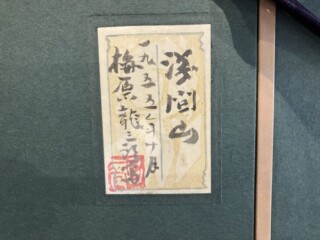 淺間山
一九五五年十月
梅原龍三郎